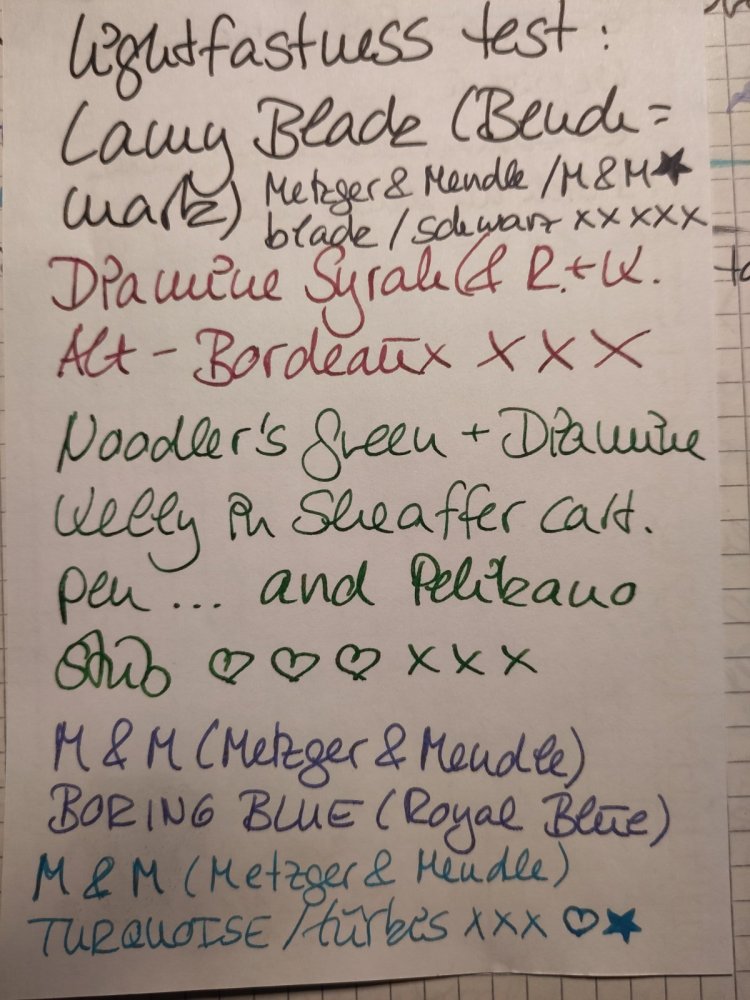 lightfastness test:
Lamy Black (Bench=
mark) Metzger & Mendle / M & M ★
black / schwarz x x x x x
Diamine Syrah (& R.+K.
Alt-Bordeaux x x x
Noodler's Green + Diamine
Kelly in Sheaffer cart.
pen ... and Pelikano
Stub ♡ ♡ ♡ x x x
M & M (Metzger & Mendle)
BORING BLUE (Royal Blue)
M & M (Metzger & Mendle)
TURQUOISE / türkis x x x ♡ ★